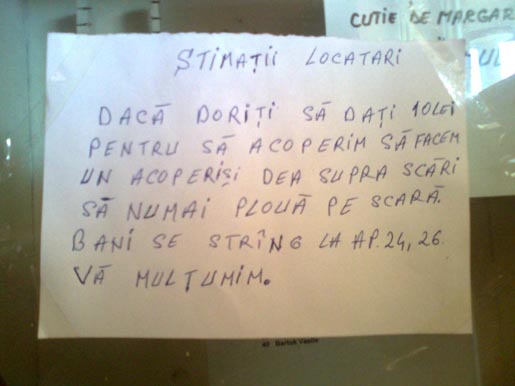 CUTIE DE MARGAR
UL
STIMAȚII LOCATARI
DACĂ DORIȚI SĂ DAȚI 10LEI
PENTRU SĂ ACOPERIM SĂ FACEM
UN ACOPERIȘI DEA SUPRA SCĂRI
SĂ NUMAI PLOUĂ PE SCARĂ.
BANI SE STRÎNG LA AP. 24, 26.
VĂ MULȚUMIM.
40 Bartok Vasile